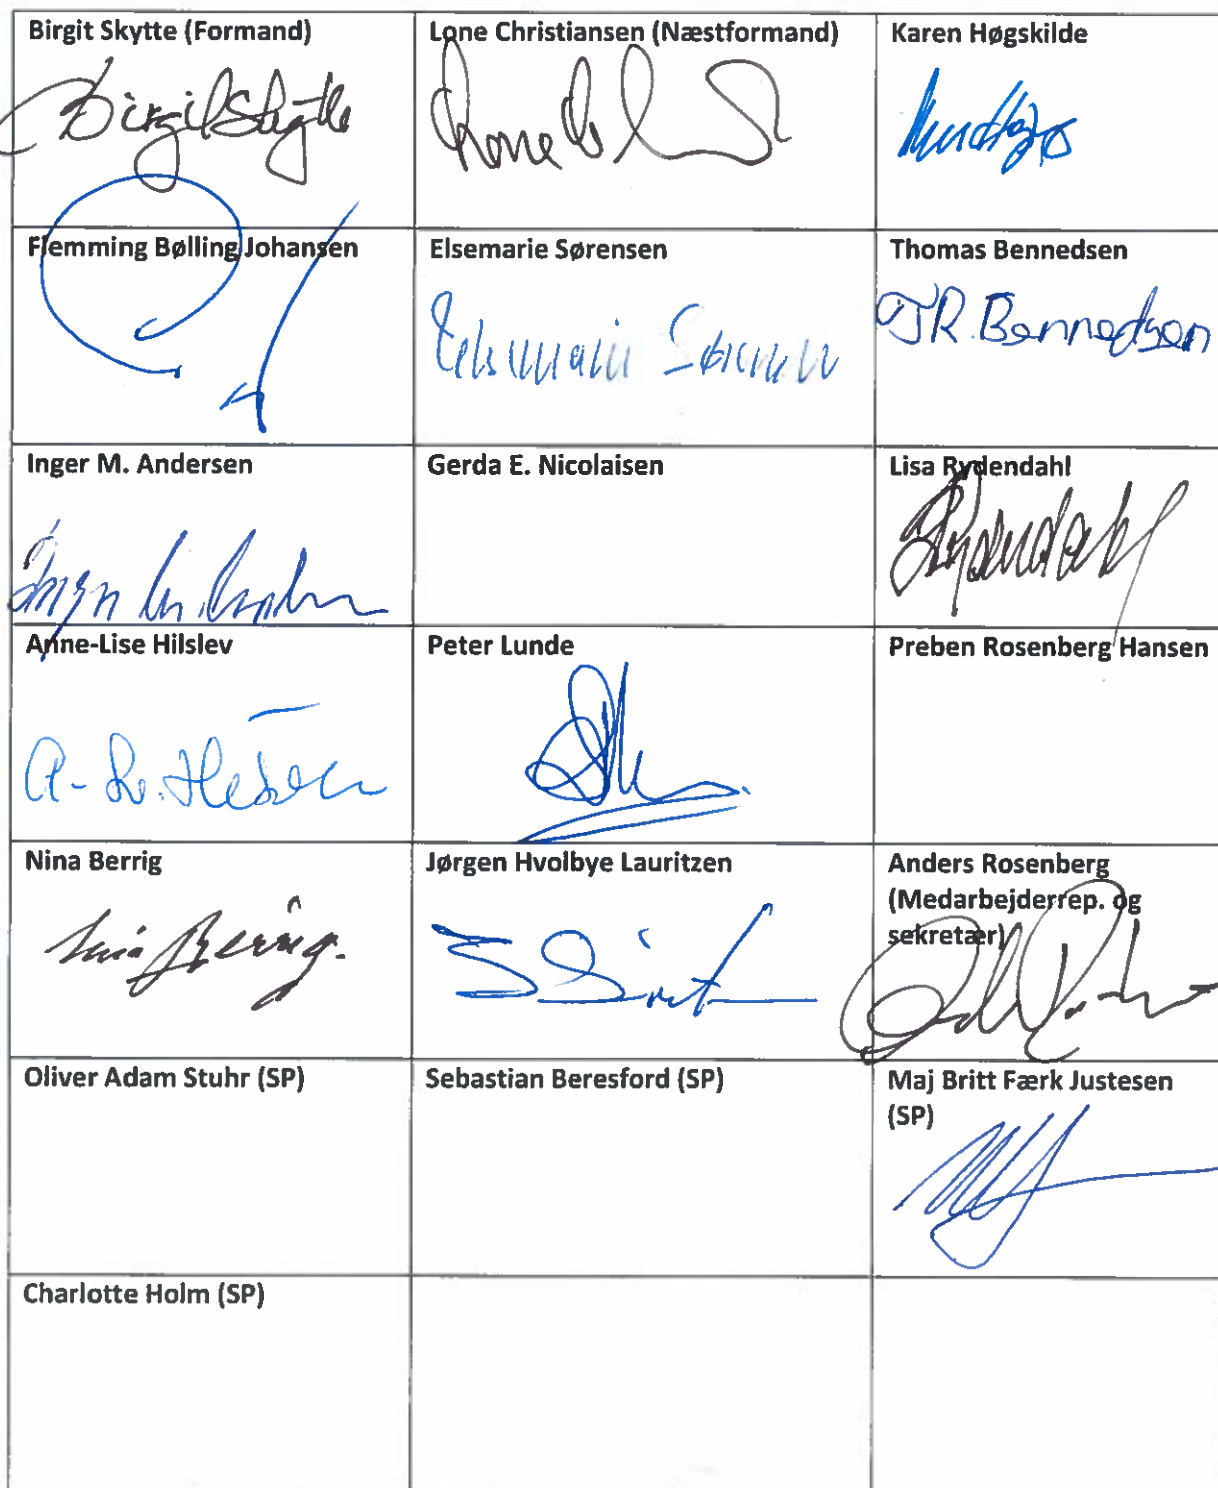 Birgit Skytte (Formand)
Lone Christiansen (Næstformand)
Karen Høgskilde
Birgit Skytte
Lone
Flemming Bølling Johansen
Elsemarie Sørensen
Thomas Bennedsen
Elsemarie Sørensen
T.R. Bennedsen
Inger M. Andersen
Gerda E. Nicolaisen
Lisa Rydendahl
Rydendahl
Anne-Lise Hilslev
Peter Lunde
Preben Rosenberg Hansen
A-L.
Nina Berrig
Jørgen Hvolbye Lauritzen
Anders Rosenberg
(Medarbejderrep. og
sekretær)
Nina Berrig.
Oliver Adam Stuhr (SP)
Sebastian Beresford (SP)
Maj Britt Færk Justesen
(SP)
Charlotte Holm (SP)